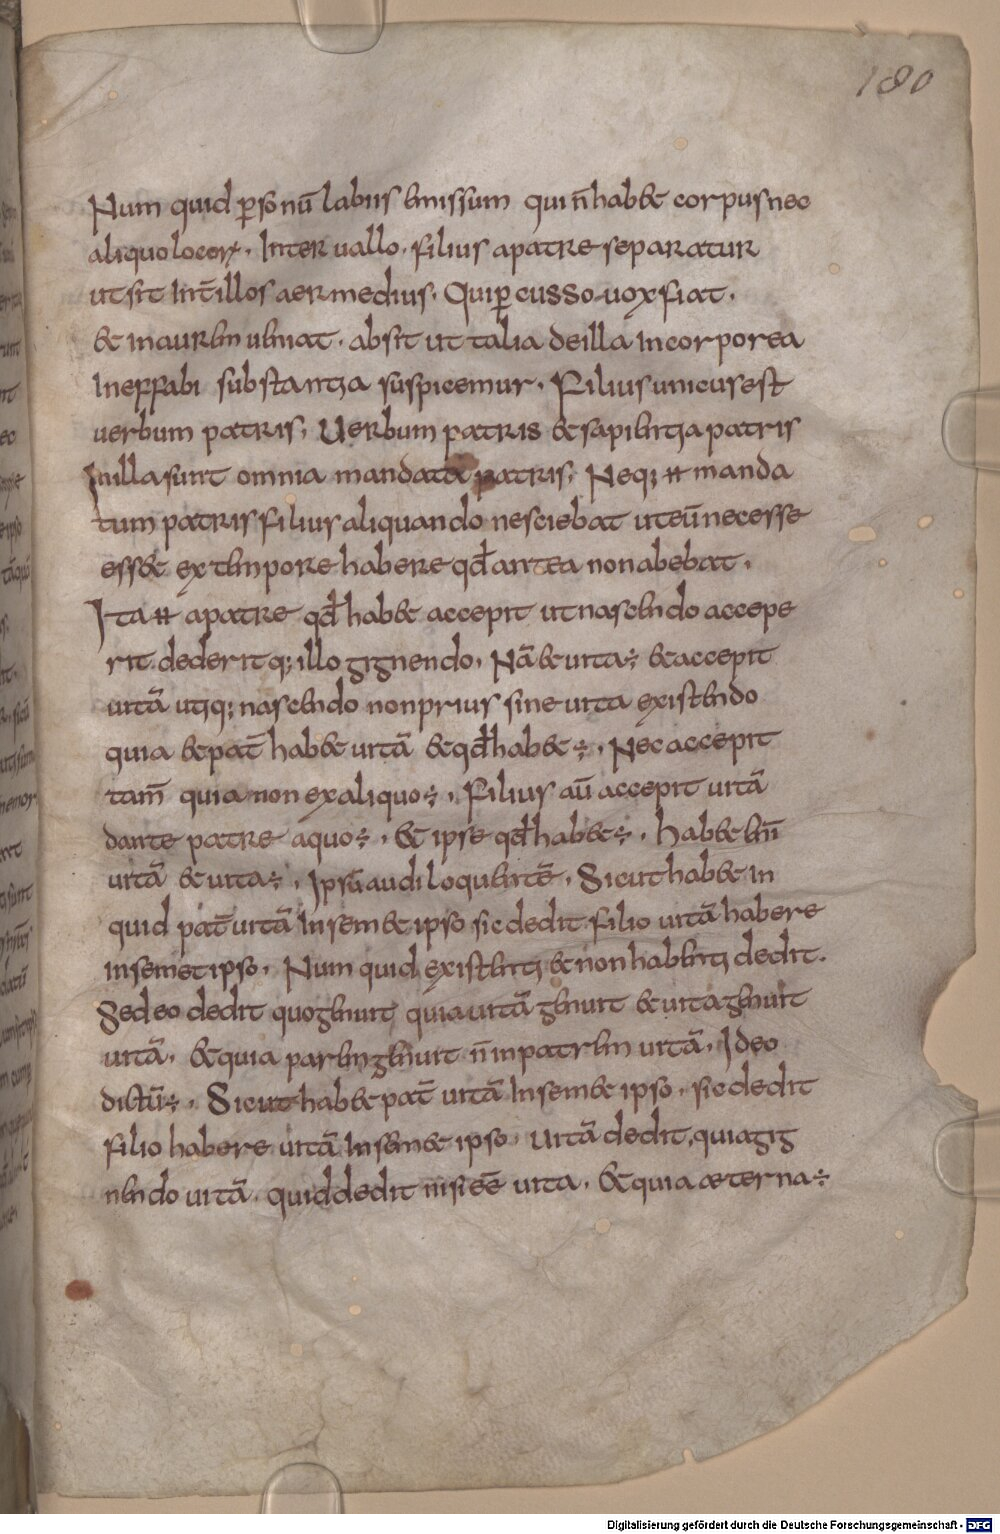 180
Num quid ꝑsonū labiis emissum qui n̄ habet corpus nec
aliquo locorꝝ. Inter uallo. filius apatre separatur
ut sit Int̄ illos aer medius. Qui ꝑcusso uox fiat.
et in aurem ueniat. absit ut talia deilla incorporea
Ineffabi substantia suspicemur. Filius unicus est
uerbum patris. Uerbum patris et sapientia patris
Inilla sunt omnia mandata patris. Neq; ÷ manda
tum patris filius aliquando nesciebat ut eū necesse
esset ex tempore habere qd̄ antea non abebat.
Ita ÷ apatre qd̄ habet accepit ut nascendo accepe
rit. dederitq; illo gignendo. Nā et uita ÷ et accepit
uitā utiq; nascendo non prius sine uita existendo
quia et pat̄ habet uitā et qd̄ habet ÷. Nec accepit
tam̄ quia non ex aliquo ÷. Filius aū accepit uitā
dante patre aquo ÷. Et ipse qd̄ habet ÷. habet em̄
uitā et uita ÷. Ipsū audi loquentē. Sicut habet in
quid pat̄ uitā Insemet ipso sic dedit filio uitā habere
insemet ipso. Num quid existenti et non habenti dedit.
Sed eo dedit quo genuit quia uitā genuit et uita genuit
uitā. et quia parem genuit n̄ inpatrem uitā. Ideo
dictū ÷. Sicut habet pat̄ uitā Insemet ipso. sic dedit
filio habere uitā Insemet ipso. Uitā dedit, quia gig
nendo uitā. quid dedit nisi eē uita. Et quia æterna ÷
Digitalisierung gefördert durch die Deutsche Forschungsgemeinschaft - DFG